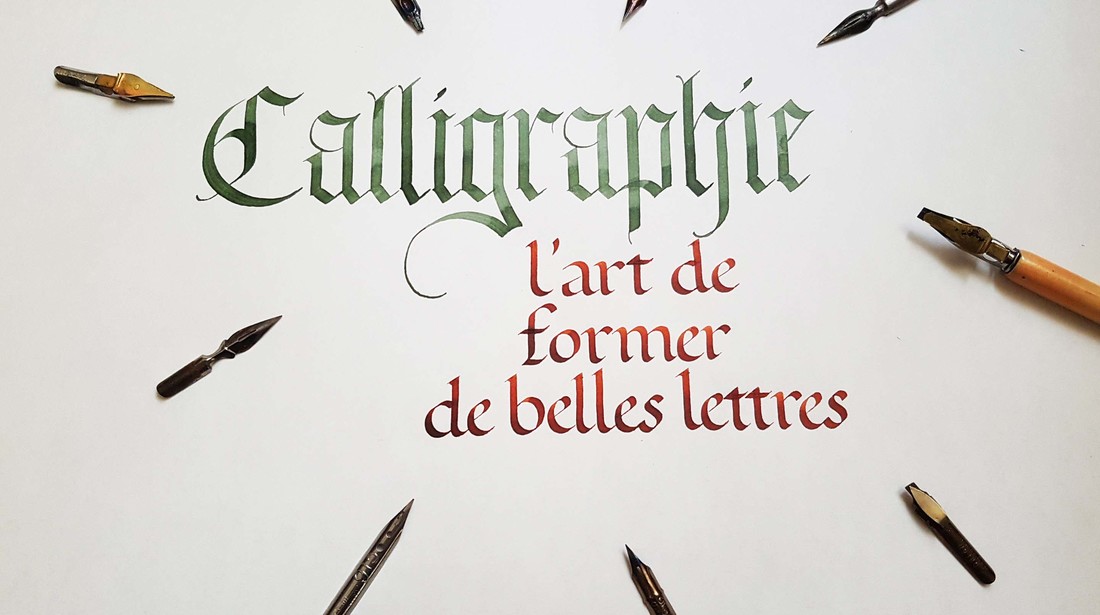 Calligraphie
l'art de
former
de belles lettres